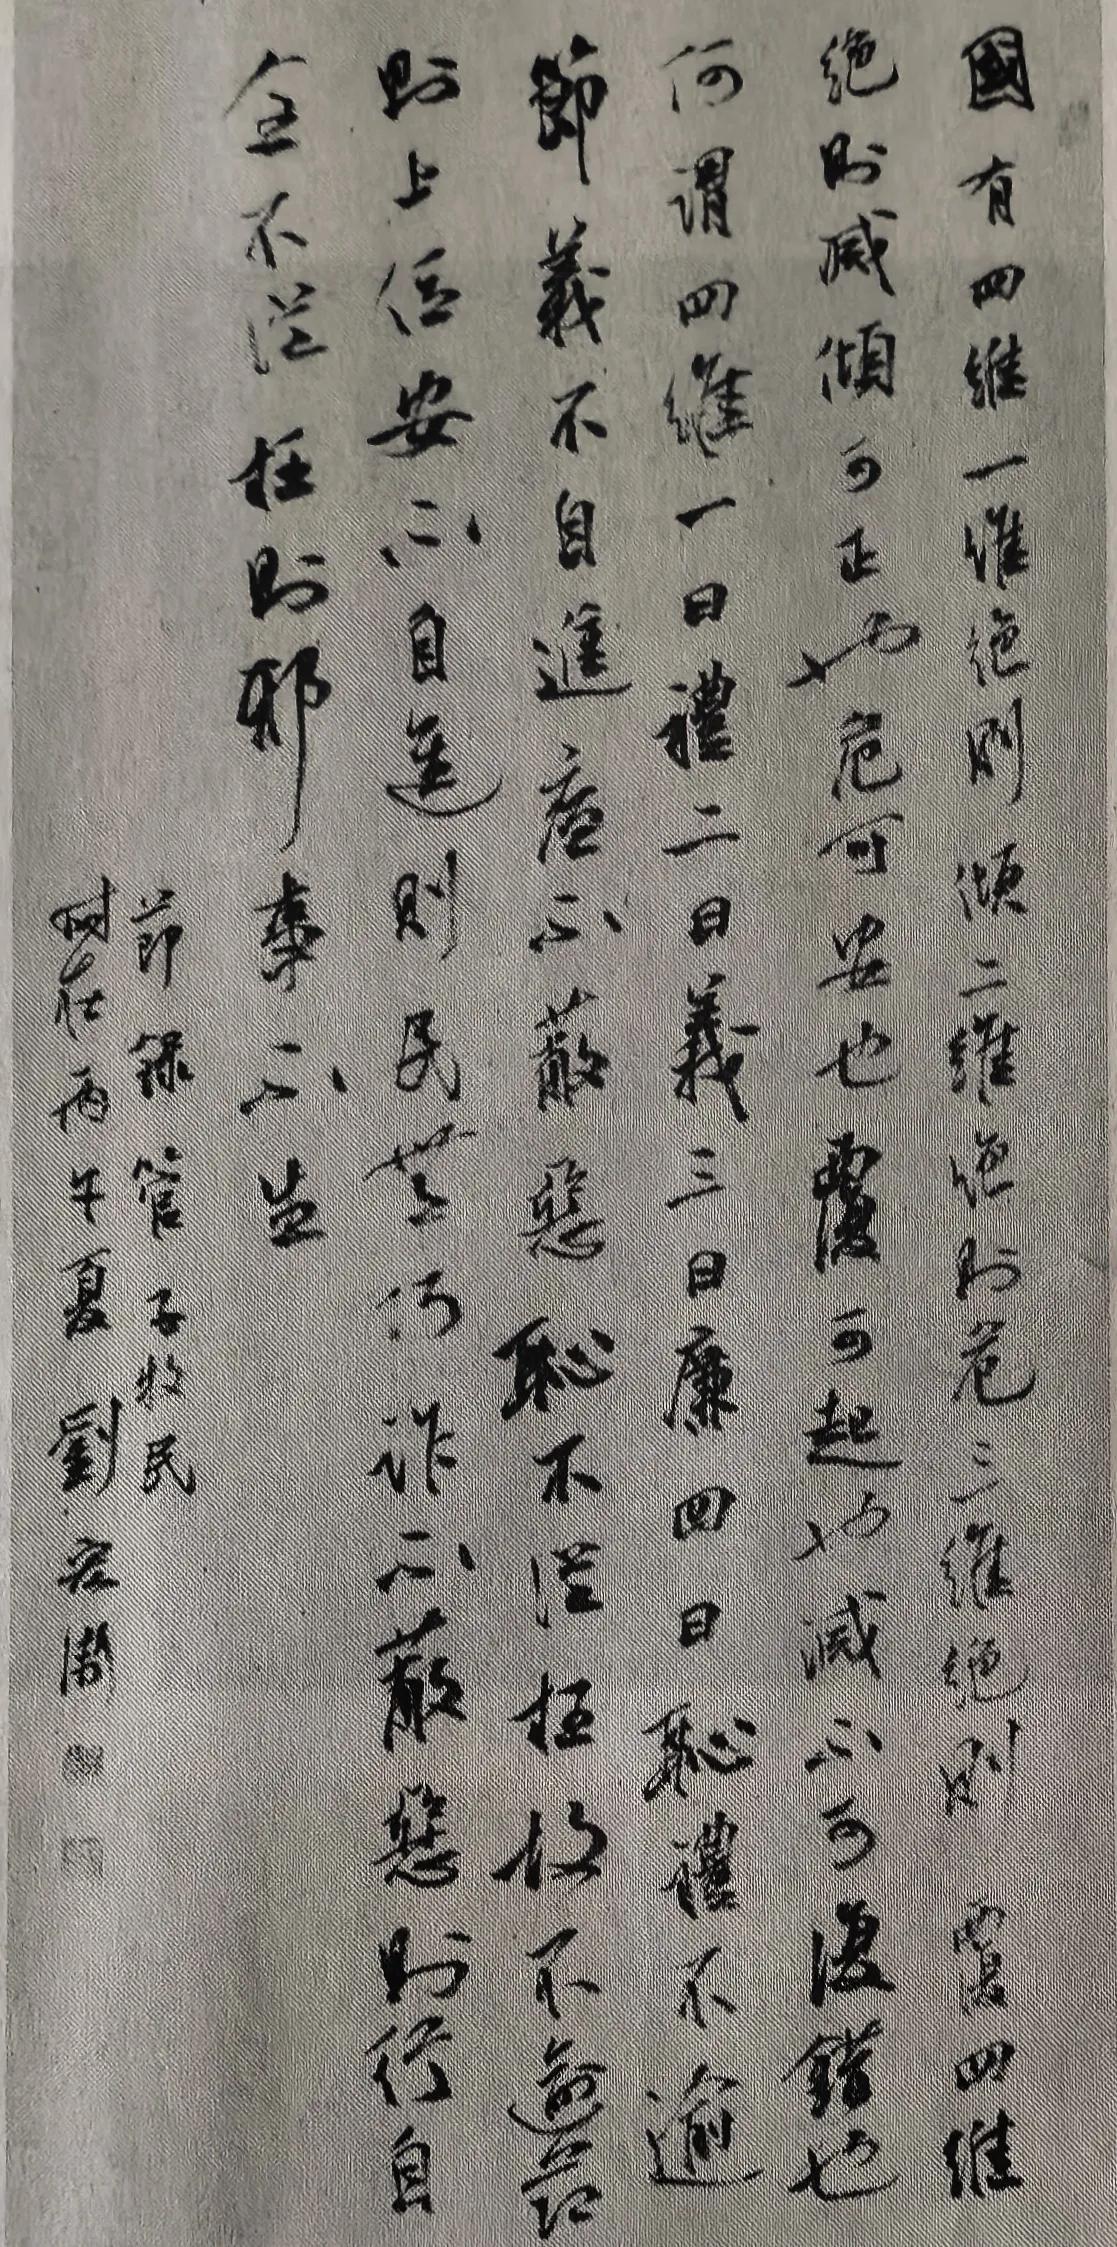 國有四維一維絕則傾二維絕則危三維絕則覆四維
絕則滅傾可正也危可安也覆可起也滅不可復錯也
何謂四維一曰禮二曰義三曰廉四曰恥禮不逾
節義不自進廉不蔽惡恥不從枉故不逾節
則上位安不自進則民無巧詐不蔽惡則行自
全不從枉則邪事不生
節錄管子牧民
時在丙午夏劉宏